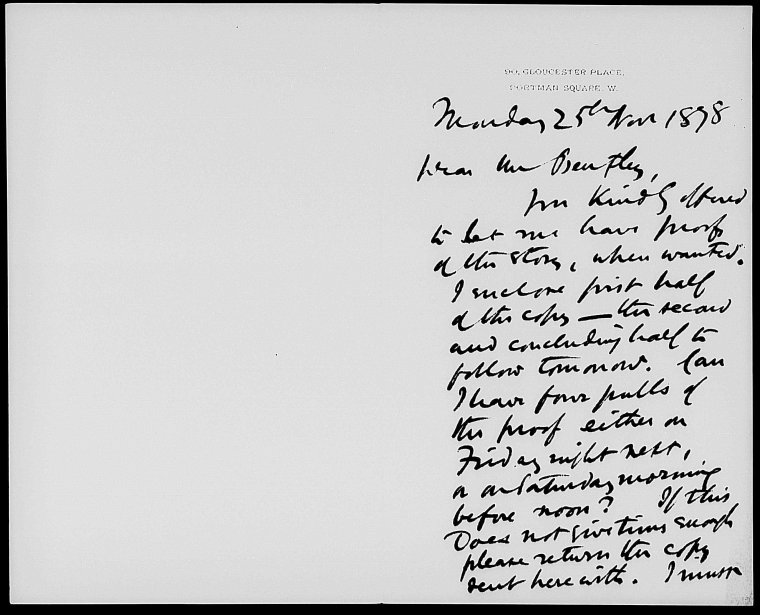 90, GLOUCESTER PLACE,
PORTMAN SQUARE. W.
Monday 25th Nov 1878
Dear Mr Bentley,
You kindly offered
to let me have proofs
of the story, when wanted.
I enclose first half
of the copy — the second
and concluding half to
follow tomorrow. Can
I have four pulls of
the proof either on
Friday night next,
or on Saturday morning
before noon? If this
Does not give time enough
please return the copy
sent herewith. I must